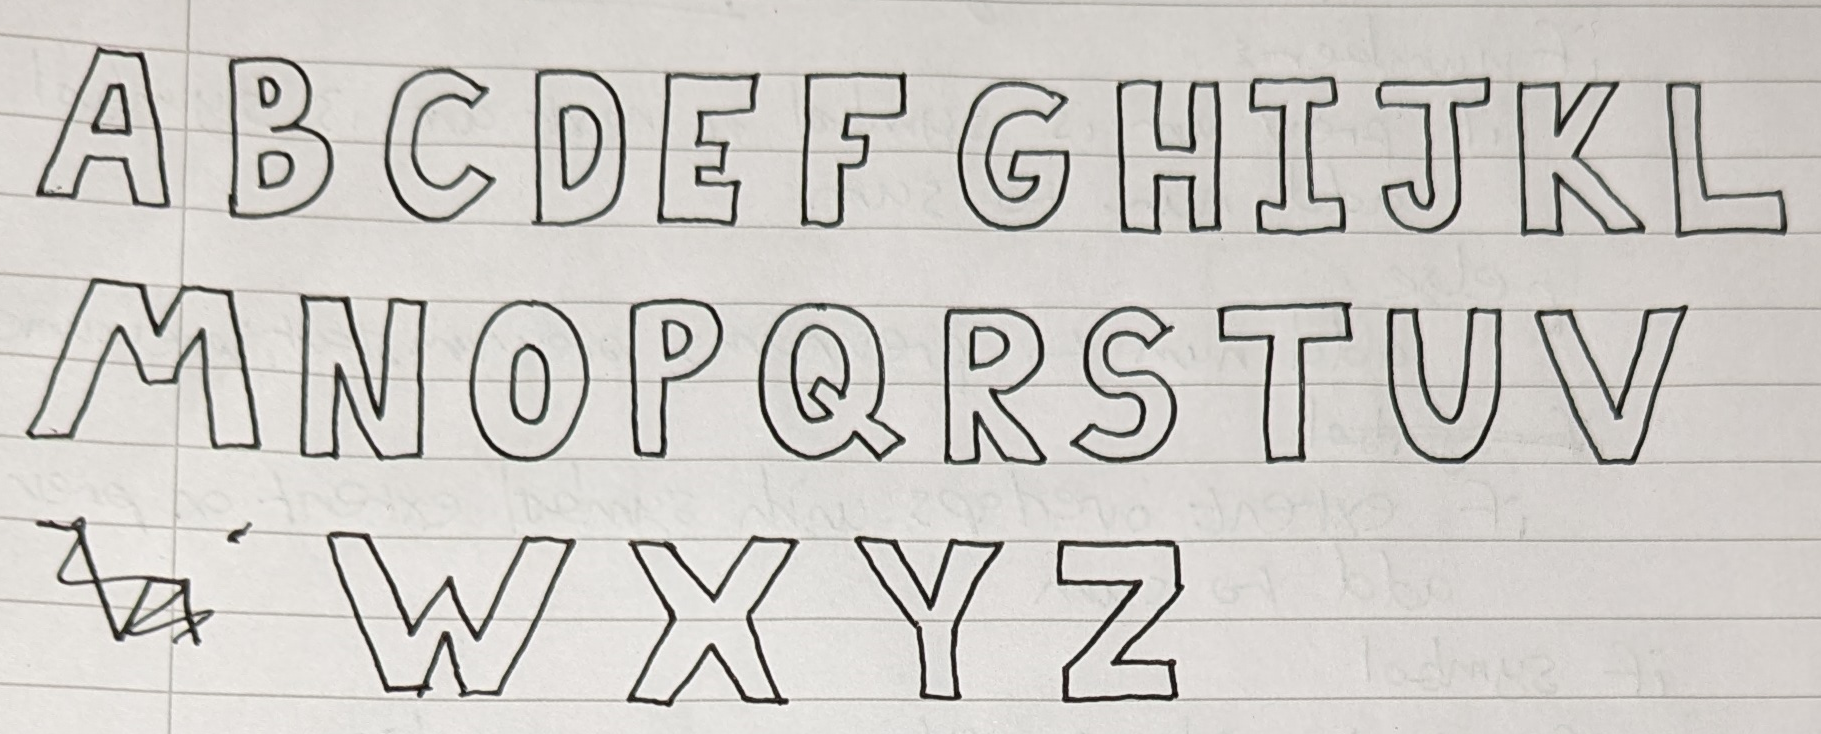 ABCDEFGHIJKL
MNOPQRSTUV
WXYZ